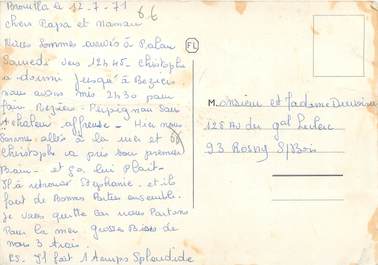 Brouilla le 12-7-71
Chers Papa et Maman
66
Nous Sommes arrivés à
Samedi vers 12h45. Christophe
a dormi jusqu'à Beziers
nous avons mis 2h30 pour
fair Béziers - Perpignan Sous
1 chaleur affreuse - Hier nous
Somme allés à la mer et
Christophe a pris son premier
Bain - et ça lui Plait.
Il à retrouvé Stephanie. et il
font de Bonnes Parties ensemble.
Je vous quitte car nous Partons
Pour la mer. grosses Bises de
nous 3
PS. Il fait 1 temps Splendide
FL
Monsieur et Madame
128 AV du gal Leclerc
93 Rosny S/Bois